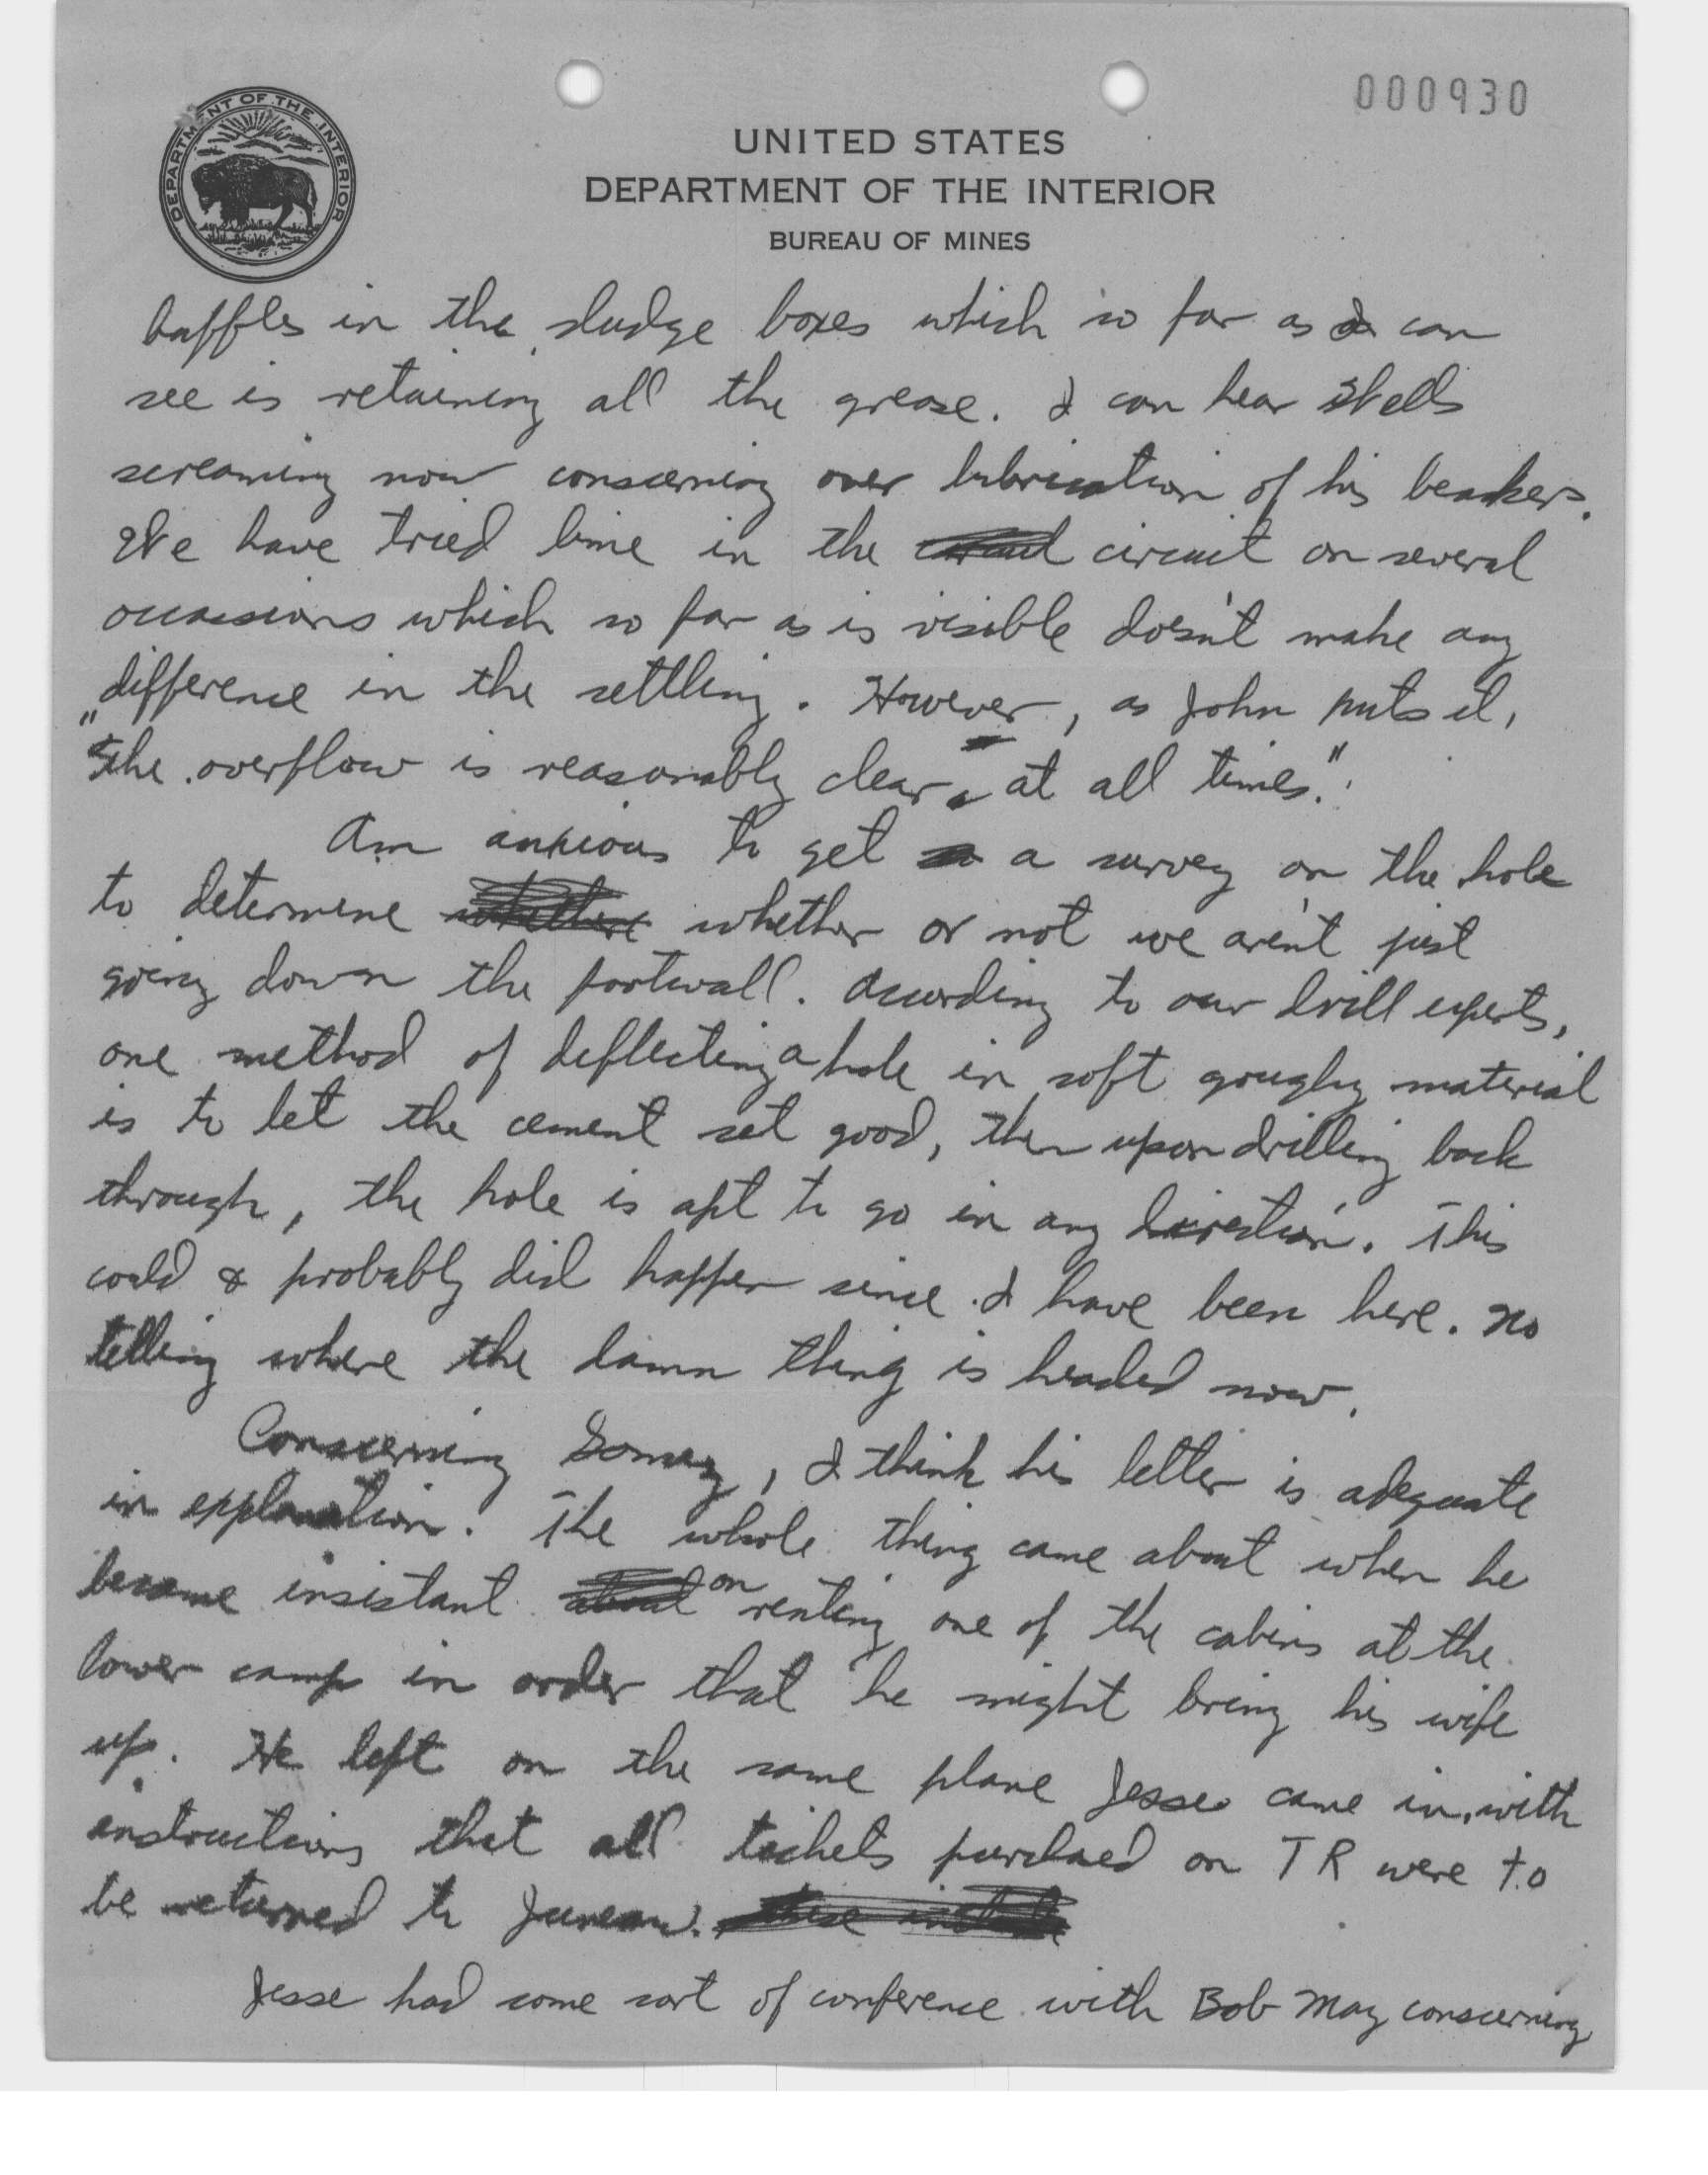 000930
DEPARTMENT OF THE INTERIOR
UNITED STATES
DEPARTMENT OF THE INTERIOR
BUREAU OF MINES
baffles in the sludge boxes which so far as I can
see is retaining all the grease. I can hear Shells
screaming now conscerning over lubrication of his beakers.
We have tried lime in the circuit on several
occassions which so far as is visible doesn't make any
difference in the settling. However, as John puts it,
"The overflow is reasonably clear at all times."
Am anxious to get a survey on the hole
to determine whether or not we aren't just
going down the footwall. According to our drill experts,
one method of deflecting a hole in soft goughy material
is to let the cement set good, then upon drilling back
through, the hole is apt to go in any direction. This
could & probably did happen since I have been here. No
telling where the damn thing is headed now.
Conscerning , I think his letter is adequate
in explanation. The whole thing came about when he
became insistant on renting one of the cabins at the
lower camp in order that he might bring his wife
up. He left on the same plane Jesse came in, with
instructions that all tickets purchased on TR were to
be returned to Juneau.
Jesse had some sort of conference with Bob May conscerning